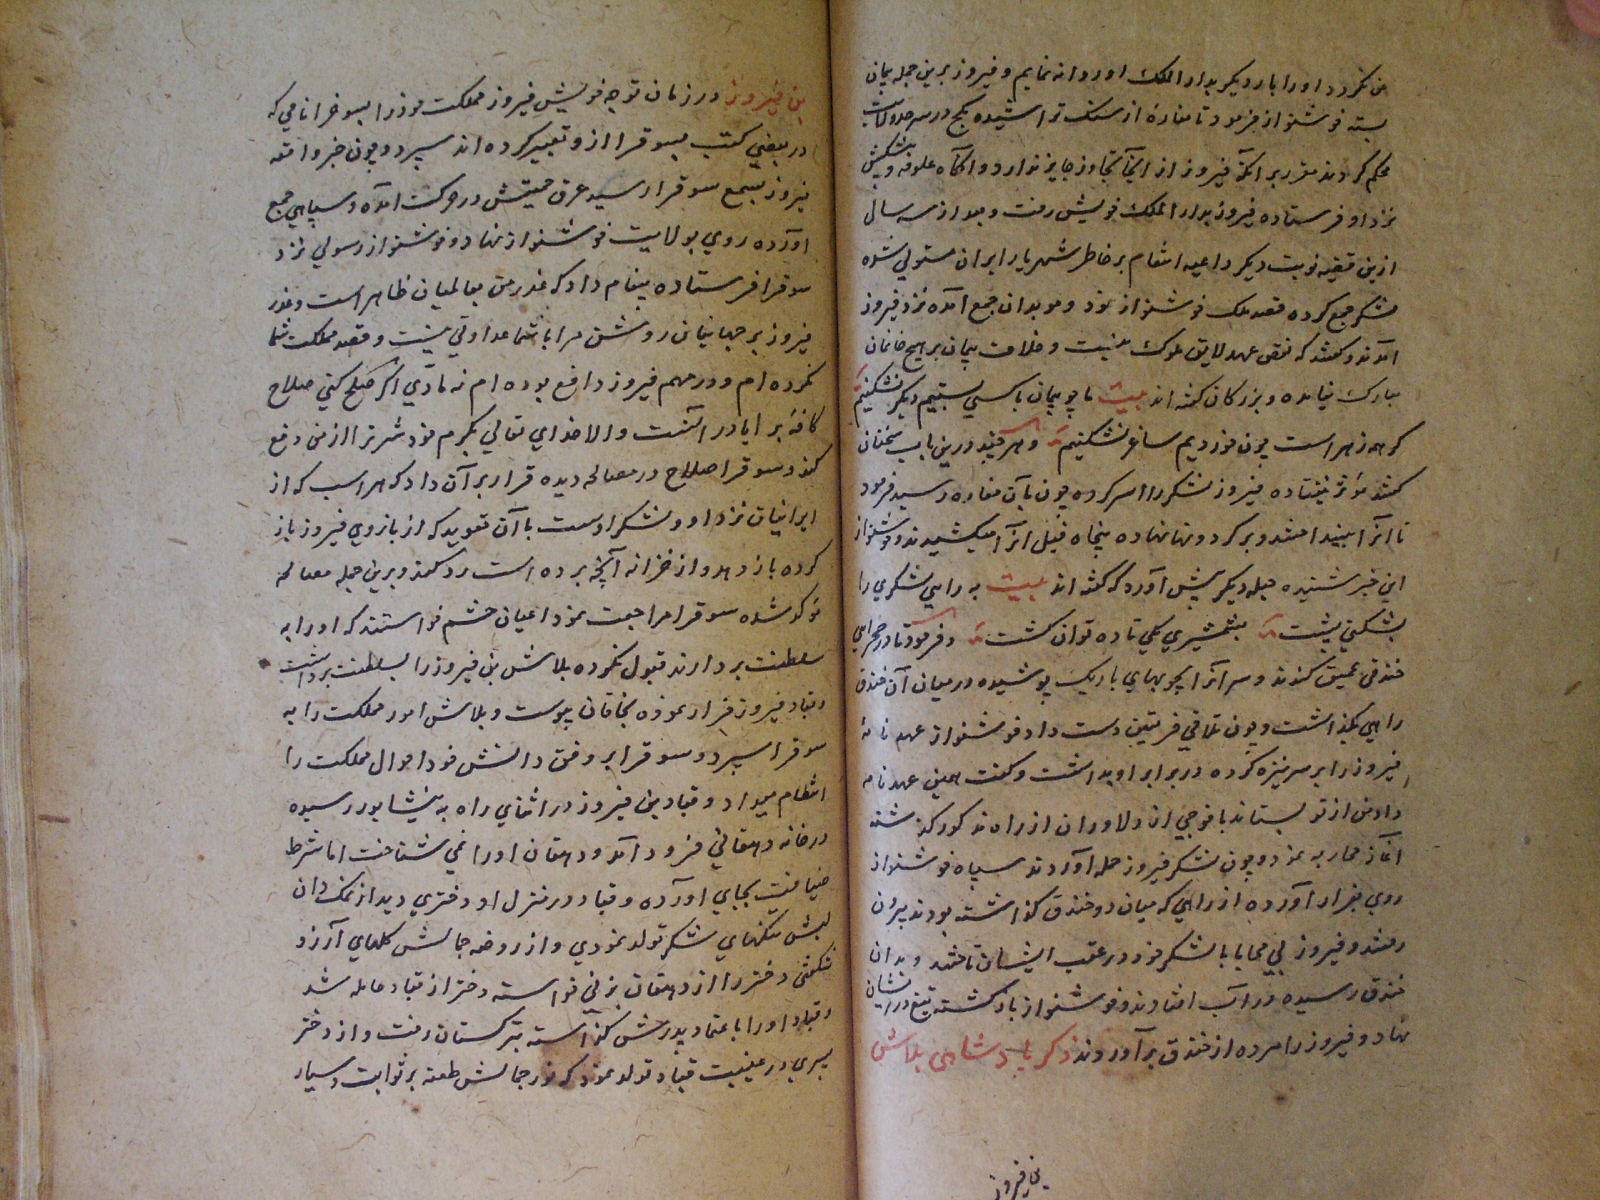 من نگردد او را بار دیگر بدار الملک او روانه نمایم و فیروز برین جمله پیمان
بسته خوشنواز فرمود تا مناره از سنک تراشیده کچ در سرحد ولایت
محکم کردند مقرر برانکه فیروز از انجا تجاوز جایز ندارد و انکاه علوفه و پیشکش
نزد او فرستاده فیروز بدار الملک خویش رفت و بعد از سه سال
ازین قضیه نوبت دیکر داعیه انتقام بر خاطر شهریار ایران مستولی شده
لشکر جمع کرده قصد ملک خوشنواز نمود و موبدان جمع آمده نزد فیروز
آمدند و گفتند که نقض عهد لایق ملوک نیست و خلاف پیمان بر هیچ خاندان
مبارک نیامده و بزرکان گفته اند بیت ما چو پیمان با کسی بستیم دیکر نشکنیم
کر همه زهر است چون خوردیم ساغر نشکنیم و هر چند درین باب سخنان
گفتند مؤثر نیفتاده فیروز لشکر را سر کرده چون بآن مناره رسید فرمود
تا آنرا بینداختند و بر کردونها نهاده پنجاه فیل آنرا میکشیدند و خوشنواز
این خبر شنیده حیله دیکر پیش آورد که گفته اند بیت به رایی لشکری را
بشکنی پشت بشمشیری یکی تا ده توان کشت و فرمود تا در صحرایی
خندقی عمیق کندند و سر آنرا بچوبهای باریک پوشیده در میان آن خندق
راهی بگذاشت و چون تلاقی فریقین دست داد خوشنواز عهد نامهٔ
فیروز را بر سر نیزه کرده در برابر او بداشت و گفت همین عهد نامه
داد من از تو بستاند با فوجی از دلاوران از راه مذکور گذشته
آغاز محاربه نمود و چون لشکر فیروز حمله آوردند سپاه خوشنواز
روی بفرار آورده از راهی که میان دو خندق گذاشته بودند بیرون
رفتند و فیروز بی محابا با لشکر خود در عقب ایشان تاختند و بدان
خندق رسیده در آن افتادند و خوشنواز بازگشته تیغ در ایشان
نهاد و فیروز را مرده از خندق برآوردند ذکر پادشاهی بلاش
بن فیروز
بن فیروز در زمان توجه خویش فیروز مملکت خود را بسوخرا نامی که
در بعضی کتب بسوقرا از و تعبیر کرده اند سپرد و چون خبر واقعه
فیروز بسمع سوقرا رسید عرق حمیتش در حرکت آمده و سپاهی جمع
آورده روی بولایت خوشنواز نهاد و خوشنواز رسولی نزد
سوقرا فرستاده پیغام داد که عذر من بعالمیان ظاهر است و غدر
فیروز بر جهانیان روشن مرا با شما عداوتی نیست و قصد مملکت شما
نکرده ام و در مهم فیروز دافع بوده ام نه بادی اکر صلح کنی صلاح
کافهٔ برایا در آنست والا خدای تعالی بکرم خود شر ترا از من دفع
کند و سوقرا صلاح در مصالحه دیده قرار بر آن داد که هر اسب که از
ایرانیان نزد او و لشکر اوست با آن تعوید که از بازوی فیروز باز
کرده باز دهد و از خزانه آنچه برده است رد کند و برین جمله مصالحه
مؤکد شده سوقرا مراجعت نمود اعیان حشم خواستند که او را به
سلطنت بردارند قبول نکرده بلاش بن فیروز را بسلطنت برداشت
و قباد فیروز فرار نموده بخاقان پیوست و بلاش امور مملکت را به
سوقرا سپرد و سوقرا بر وفق دانش خود احوال مملکت را
انتظام میداد و قباد بن فیروز در اثنای راه به نیشابور رسیده
در خانه دهقانی فرود آمد و دهقان او را نمی شناخت اما شرط
ضیافت بجای آورده و قباد در منزل او دختری دید از نمک دان
لبش تنکهای شکر تولد نمودی و از روضه جمالش گلهای آرزو
شکفتی دختر را از دهقان بزنی خواسته دختر از قباد حامله شد
و قباد او را باعتماد پدرش گذاشته بترکستان رفت و از دختر
پسری در غیبت قباد تولد نمود که نور جمالش طعنه بر ثوابت و سیار